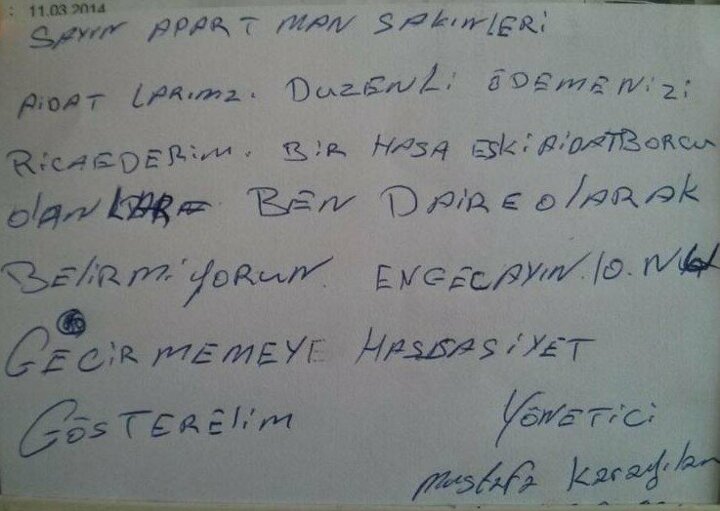 11.03.2014
SAYIN APARTMAN SAKINLERİ
AİDATLARIMZI. DUZENLİ ÖDEMENİZİ
RİCAEDERİM. BİR HASA ESKİ AİDATBORCU
OLAN BEN DAİRE OLARAK
BELİRMİYORUN. ENGEÇAYIN.10.N
GEÇİRMEMEYE HASSASİYET
GÖSTERELİM YÖNETİCİ
mustafa Karayılan